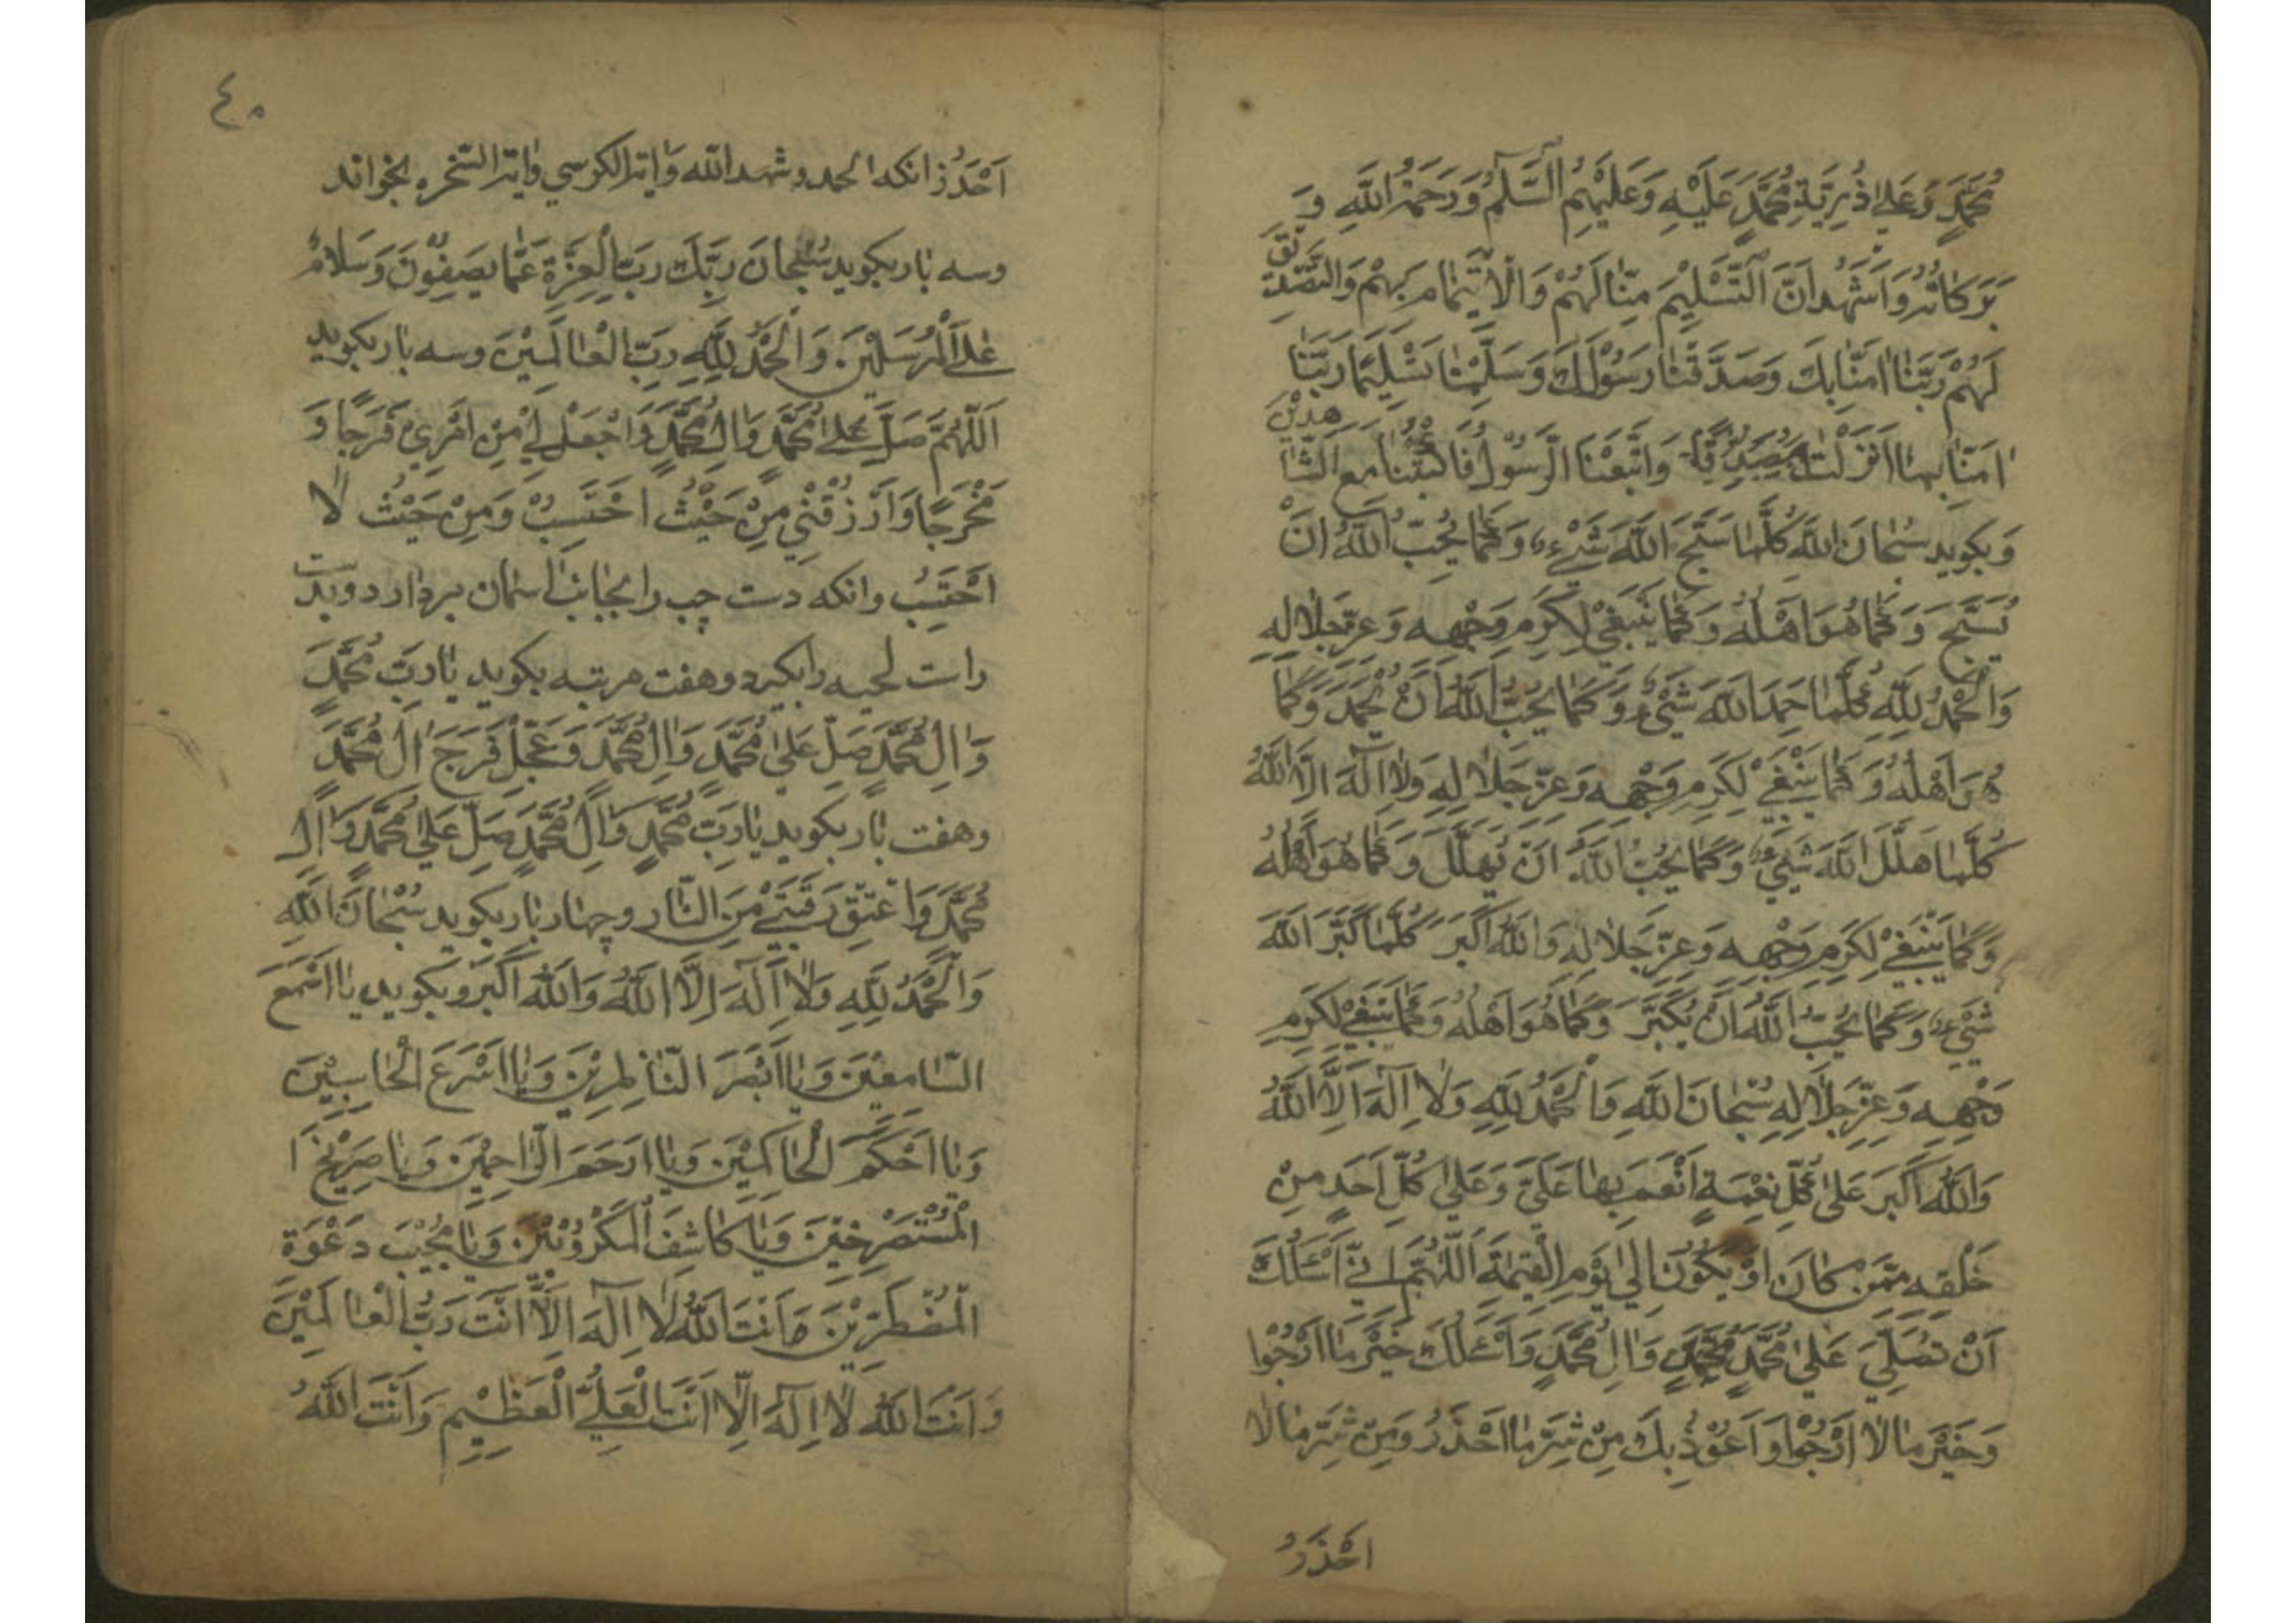 مُحَمَّدٍ وَعَلىٰ ذُرِّيَّةِ مُحَمَّدٍ عَلَيْهِ وَعَلَيْهِمُ السَّلَامُ وَرَحْمَةُ اللّٰهِ وَ
بَرَكَاتُهُ وَاَشْهَدُ اَنَّ التَّسْلِيْمَ مِنّٰا لَهُمْ وَالْاِتِمٰامَ بِهِمْ وَالتَّصْدِيْقَ
لَهُمْ رَبَّنٰا اٰمَنّٰا بِكَ وَصَدَّقْنٰا رَسُوْلَكَ وَسَلَّمْنٰا تَسْلِيْمًا رَبَّنٰا
اٰمَنّٰا بِمٰا اَنْزَلْتَ وَاتَّبَعْنَا الرَّسُوْلَ فَاكْتُبْنٰا مَعَ الشّٰاهِدِيْنَ
وَبكويد سُبْحٰانَ اللّٰهِ كُلَّمٰا سَبَّحَ اللّٰهَ شَيْءٌ وَكَمٰا يُحِبُّ اللّٰهُ اَنْ
يُسَبَّحَ وَكَمٰا هُوَ اَهْلُهُ وَكَمٰا يَنْبَغِيْ لِكَرَمِ وَجْهِهِ وَعِزِّ جَلٰالِهِ
وَالْحَمْدُ لِلّٰهِ كُلَّمٰا حَمِدَ اللّٰهَ شَيْءٌ وَكَمٰا يُحِبُّ اللّٰهُ اَنْ يُحْمَدَ وَكَمٰا
هُوَ اَهْلُهُ وَكَمٰا يَنْبَغِيْ لِكَرَمِ وَجْهِهِ وَعِزِّ جَلٰالِهِ وَلٰا اِلٰهَ اِلَّا اللّٰهُ
كُلَّمٰا هَلَّلَ اللّٰهَ شَيْءٌ وَكَمٰا يُحِبُّ اللّٰهُ اَنْ يُهَلَّلَ وَكَمٰا هُوَ اَهْلُهُ
وَكَمٰا يَنْبَغِيْ لِكَرَمِ وَجْهِهِ وَعِزِّ جَلٰالِهِ وَاللّٰهُ اَكْبَرُ كُلَّمٰا كَبَّرَ اللّٰهَ
شَيْءٌ وَكَمٰا يُحِبُّ اللّٰهُ اَنْ يُكَبَّرَ وَكَمٰا هُوَ اَهْلُهُ وَكَمٰا يَنْبَغِيْ لِكَرَمِ
وَجْهِهِ وَعِزِّ جَلٰالِهِ سُبْحٰانَ اللّٰهِ وَالْحَمْدُ لِلّٰهِ وَلٰا اِلٰهَ اِلَّا اللّٰهُ
وَاللّٰهُ اَكْبَرُ عَلىٰ كُلِّ نِعْمَةٍ اَنْعَمَ بِهٰا عَلَيَّ وَعَلىٰ كُلِّ اَحَدٍ مِنْ
خَلْقِهِ مِمَّنْ كٰانَ اَوْ يَكُوْنُ اِلىٰ يَوْمِ الْقِيٰمَةِ اَللّٰهُمَّ اِنِّيْ اَسْئَلُكَ
اَنْ تُصَلِّيَ عَلىٰ مُحَمَّدٍ مُحَمَّدٍ وَاٰلِ مُحَمَّدٍ وَاَسْئَلُكَ خَيْرَ مٰا اَرْجُوْا
وَخَيْرَ مٰا لٰا اَرْجُوْا وَاَعُوْذُ بِكَ مِنْ شَرِّ مٰا اَحْذَرُ وَمِنْ شَرِّ مٰا لٰا
اَحْذَرُ
٤٠
اَحْذَرُ وانكه الحمد وشهد الله وَاية الكرسي واية السّخره بخواند
وسه بار بكويد سُبْحٰانَ رَبِّكَ رَبِّ الْعِزَّةِ عَمّٰا يَصِفُوْنَ وَسَلَامٌ
عَلَى الْمُرْسَلِيْنَ وَالْحَمْدُ لِلّٰهِ رَبِّ الْعٰالَمِيْنَ وسه بار بكويد
اَللّٰهُمَّ صَلِّ عَلىٰ مُحَمَّدٍ وَاٰلِ مُحَمَّدٍ وَاجْعَلْ لِيْ مِنْ اَمْرِيْ فَرَجًا وَ
مَخْرَجًا وَارْزُقْنِيْ مِنْ حَيْثُ اَحْتَسِبُ وَمِنْ حَيْثُ لٰا
اَحْتَسِبُ وانكه دست چپ را بجانب اسمان بردارد وبدست
راست لحيه را بكيرد وهفت مرتبه بكويد يٰا رَبَّ مُحَمَّدٍ
وَاٰلِ مُحَمَّدٍ صَلِّ عَلىٰ مُحَمَّدٍ وَاٰلِ مُحَمَّدٍ وَعَجِّلْ فَرَجَ اٰلِ مُحَمَّدٍ
وهفت بار بكويد يٰا رَبَّ مُحَمَّدٍ وَاٰلِ مُحَمَّدٍ صَلِّ عَلىٰ مُحَمَّدٍ وَاٰلِ
مُحَمَّدٍ وَاعْتِقْ رَقَبَتِيْ مِنَ النّٰارِ وچهار بار بكويد سُبْحٰانَ اللّٰهِ
وَالْحَمْدُ لِلّٰهِ وَلٰا اِلٰهَ اِلَّا اللّٰهُ وَاللّٰهُ اَكْبَرُ وبكويد يٰا اَسْمَعَ
السّٰامِعِيْنَ وَيٰا اَبْصَرَ النّٰاظِرِيْنَ وَيٰا اَسْرَعَ الْحٰاسِبِيْنَ
وَيٰا اَحْكَمَ الْحٰاكِمِيْنَ وَيٰا اَرْحَمَ الرّٰاحِمِيْنَ وَيٰا صَرِيْخَ ا
الْمُسْتَصْرِخِيْنَ وَيٰا كٰاشِفَ الْمَكْرُوْبِيْنَ وَيٰا مُجِيْبَ دَعْوَةِ
الْمُضْطَرِّيْنَ وَاَنْتَ اللّٰهُ لٰا اِلٰهَ اِلّٰا اَنْتَ رَبُّ الْعٰالَمِيْنَ
وَاَنْتَ اللّٰهُ لٰا اِلٰهَ اِلّٰا اَنْتَ الْعَلِيُّ الْعَظِيْمِ وَاَنْتَ اللّٰهُ